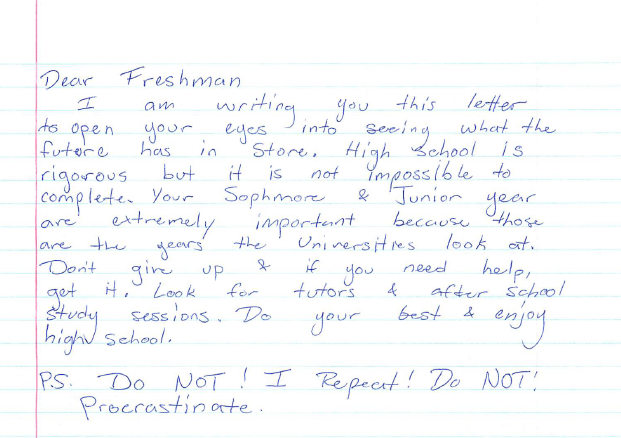 Dear Freshman
I am writing you this letter
to open your eyes into seeing what the
future has in Store. High School is
rigorous but it is not impossible to
complete. Your Sophmore & Junior year
are extremely important because those
are the years the Universities look at.
Don't give up & if you need help,
get it. Look for tutors & after School
study sessions. Do your best & enjoy
high school.
P.S. Do NOT! I Repeat! Do NOT!
Procrastinate.